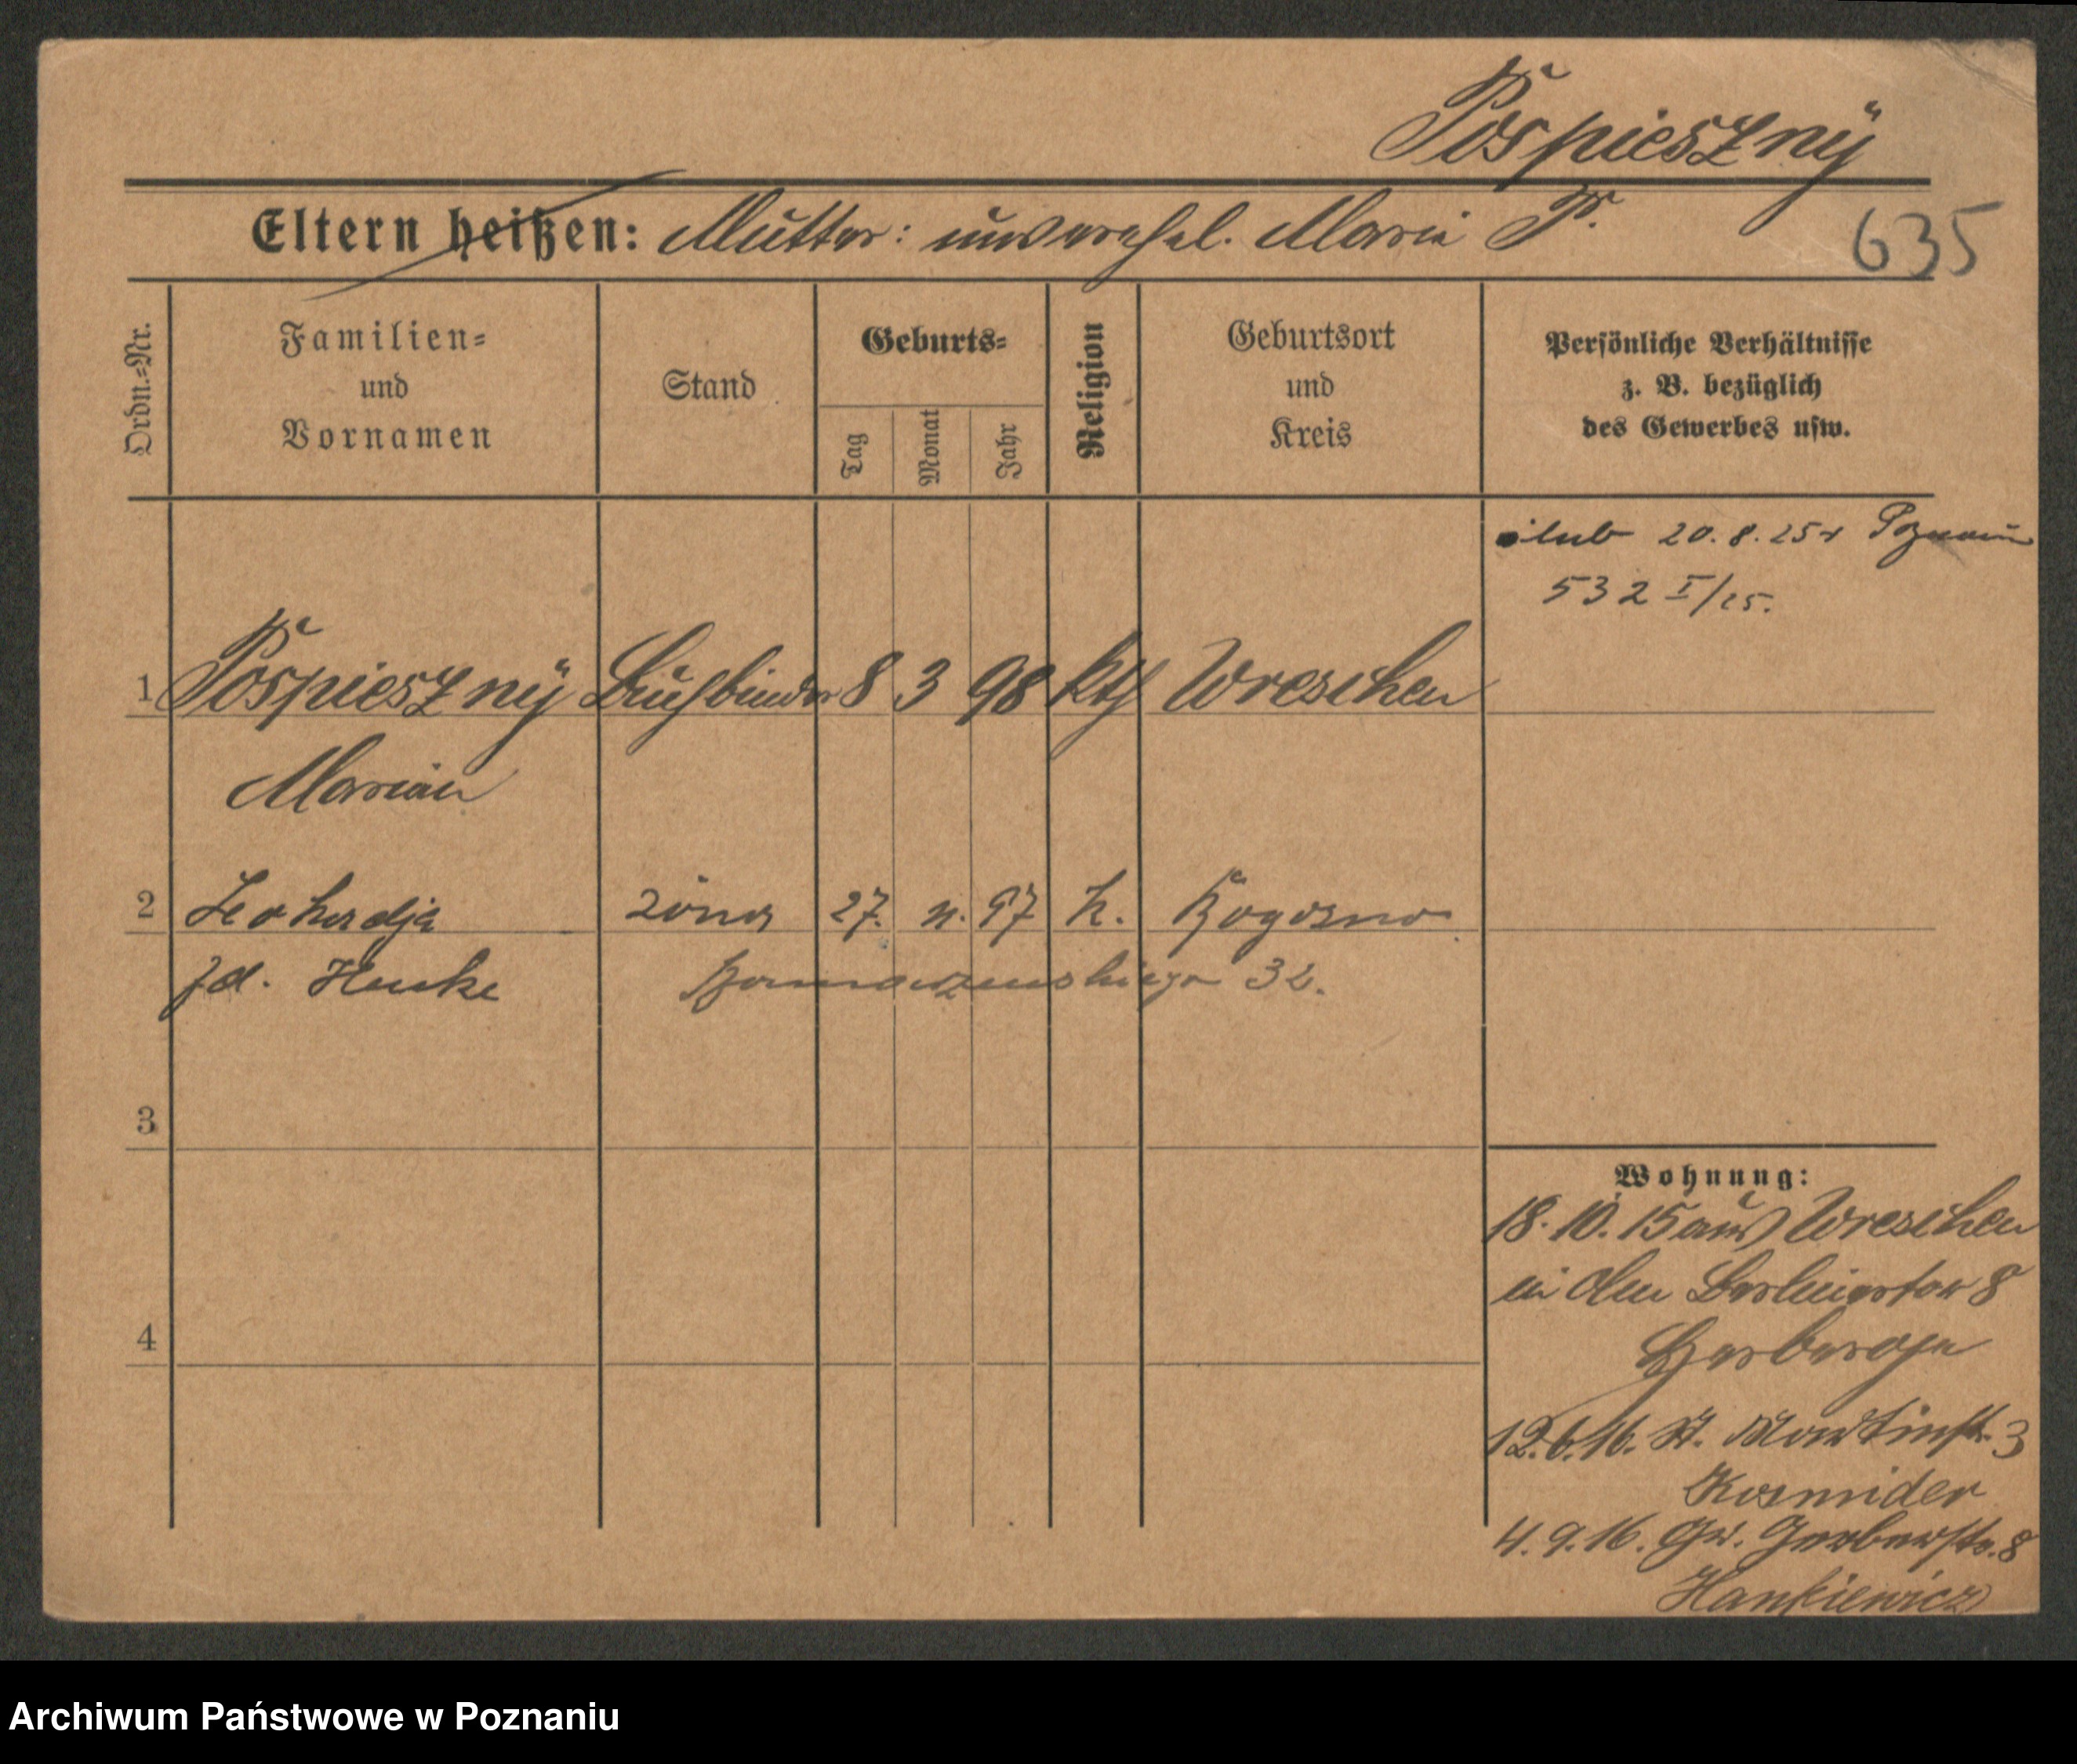 Pospieszny
Eltern heißen: Mutter: unverehel. Marie P.
635
Ordn.=Nr.
Familien=
und
Vornamen
Stand
Geburts=
Tag
Monat
Jahr
Religion
Geburtsort
und
Kreis
Persönliche Verhältnisse
z. B. bezüglich
des Gewerbes usw.
ślub 20.8.25 r Poznań
532 I/25.
1 Pospieszny Buchbinder 8 3 98 kth Wreschen
Marian
2 Leokadja żona 27. 11. 97 k. Rogoźno
zd. Henke 32.
3
4
Wohnung:
18.10.15 aus Wreschen
in Berlinertor 8
Herberge
12.6.16. St. Martinstr. 3
Kosmider
4.9.16. Gr. Gerberstr. 8
Hankiewicz
Archiwum Państwowe w Poznaniu